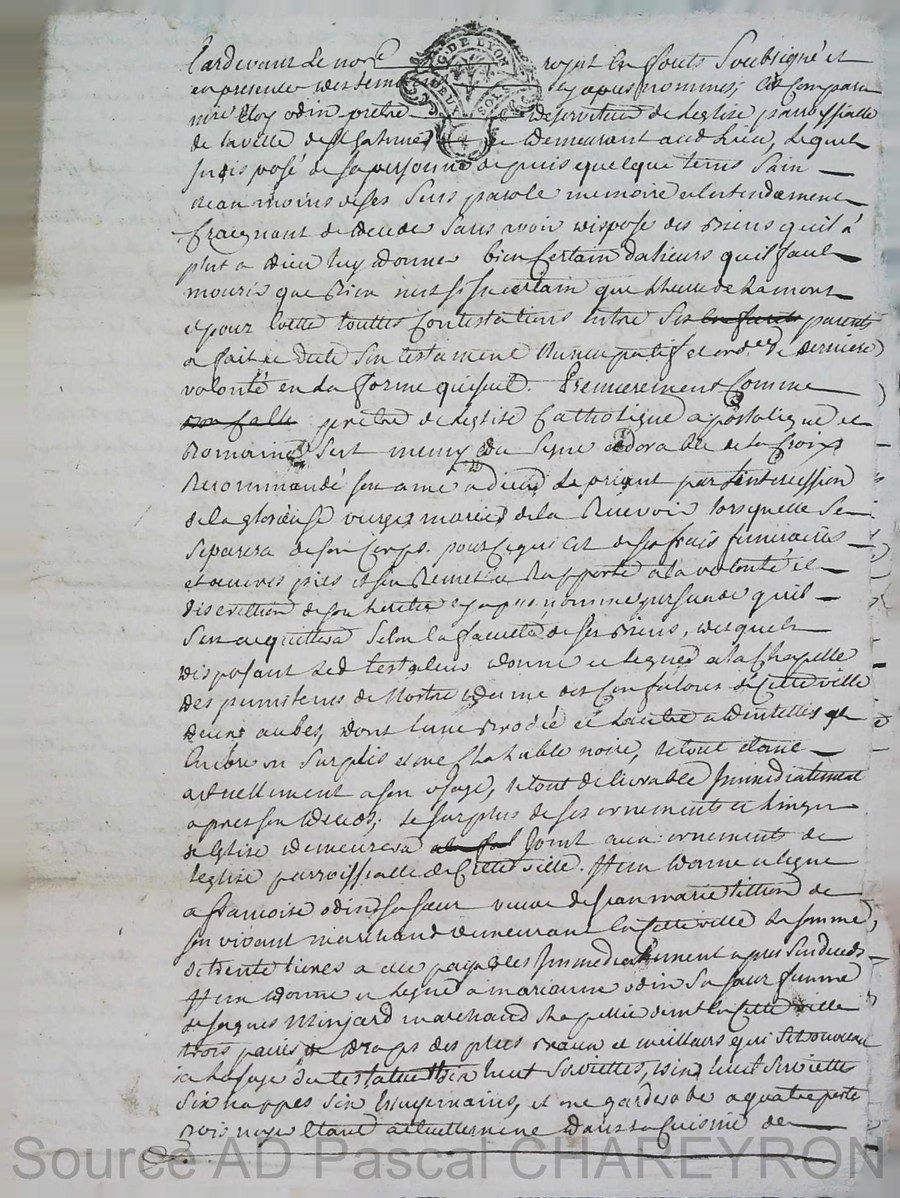 Pardevant le no.re royal En fouts Soubsigné et
en presence des temoins cy apres nommés, Est Comparu
mre Eloy odin prêtre desserviteur de Leglise parroissialle
de la ville de St Galmier y demeurant aud. Lieu, Lequel
Jndisposé de sa personne depuis quelque tems Sain
neanmoins de ses Sens parole memoire et Entendement
Craignant de deceder Sans avoir disposé des Biens quil à
plut a dieu luy donner bien Certain dalieurs quil faut
mourir que Rien nest si Jncertain que Lheure de La mort
et pour Eviter touttes Contestations Entre Ses En fants parents
a fait et dicté Son testament Nuncupatif et ord.ce de derniere
volonté en la forme quisuit. Premierement Comme
bon fils prêtre de Leglise Catholique apostolique et
Romaine Sest muny du Signe adorable de la Croix
Recommandé Son ame a dieu Le priant par Lintercession
de la glorieuse vierge marie de la Recevoir lorsquelle Se
Separera de Son Corps. pour Ce qui est de ses frais funeraires
et oeuvres pies il sen Remet et Rapporte a la volonté et
discretion de Son heritier cy apres nommé persuadé quil
Sen acquittera Selon la faculté de Ses Biens, desquels
disposant Led. testateur donne et legue a la Chapelle
des penitents de Nostre dame des Confalons de Cette ville
deux aubes, dont lune brodée et Lautre a dentelles et
Encore un Surplis et une Chasuble noire, le tout étant
actuellement a son usage, le tout delivrable Jmmediatement
apres Son deces; Le Surplus de Ses ornements et Linges
deglise demeurera Joint aux ornements de
leglise parroissialle de Cette ville. Jtem donne et legue
a francoise odin Sa Soeur veuve de Jean marie tillion de
son vivant marchand demeurant En Cette ville La Somme
de trente livres a elle payables Jmmediatement apres Son deces
Jtem donne et Legue a marianne odin Sa Soeur femme
de Jaques Minjard marchand Chapellier dem.t En Cette ville
trois paires de draps des plus Beaux et meilleurs qui Se trouveront
a lusage du testateur dix huit Serviettes,
Six nappes Six Essuyemains, et une garderobe a quatre portes
bois noyer Etant actuellement dans La Cuisine de
Source AD Pascal CHAREYRON
G. DE LYON
DEUX SOLS